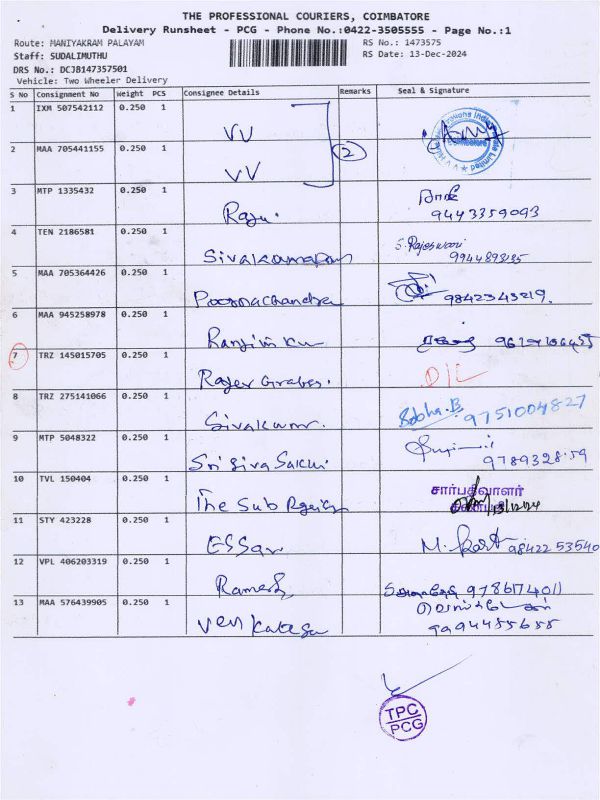 THE PROFESSIONAL COURIERS, COIMBATORE
Delivery Runsheet - PCG - Phone No.:0422-3505555 - Page No.:1
Route: MANIYAKRAM PALAYAM RS No.: 1473575
Staff: SUDALIMUTHU RS Date: 13-Dec-2024
DRS No.: DCJB147357501
Vehicle: Two Wheeler Delivery
S No Consignment No Weight PCS Consignee Details Remarks Seal & Signature
1 IXM 507542112 0.250 1 VV
2 MAA 705441155 0.250 1 VV 2
3 MTP 1335432 0.250 1 Raju. 9443359093
4 TEN 2186581 0.250 1 S. Rajeswari
5 MAA 705364426 0.250 1 Poornachandra 9842343219.
6 MAA 945258978 0.250 1
7 TRZ 145015705 0.250 1 D/L
8 TRZ 275141066 0.250 1 Sivakumar. Bobha.B 9751004827
9 MTP 5048322 0.250 1 Sri Siva Sakthi
10 TVL 150404 0.250 1 The Sub சார்பதிவாளர் 13/12/24
11 STY 423228 0.250 1 ESSar 98422 53540
12 VPL 406203319 0.250 1 Ramesh
13 MAA 576439905 0.250 1 Venkatesa 9994455655
TPC
PCG